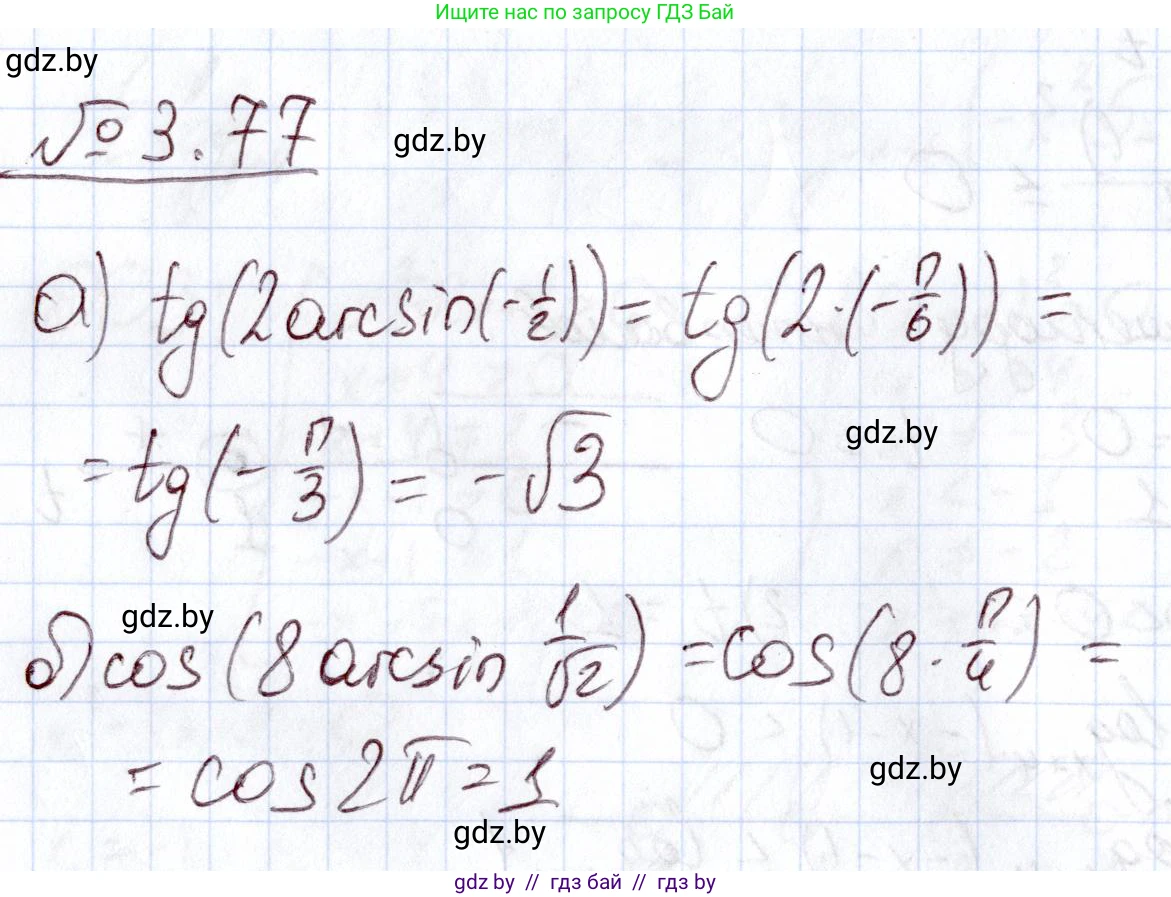 Ищите нас по запросу ГДЗ Бай
gdz.by
№ 3.77
gdz.by
а) tg(2arcsin(-1/2)) = tg(2·(-π/6)) =
gdz.by
= tg(-π/3) = -√3
gdz.by
б) cos(8 arcsin 1/√2) = cos(8·π/4) =
= cos 2π = 1
gdz.by
gdz.by
gdz.by // гдз бай // гдз by